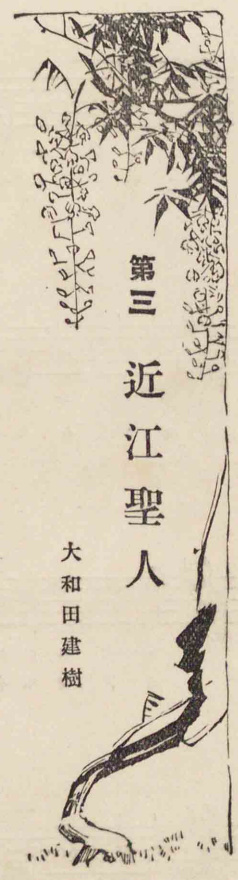 第三 近江聖人
大和田建樹